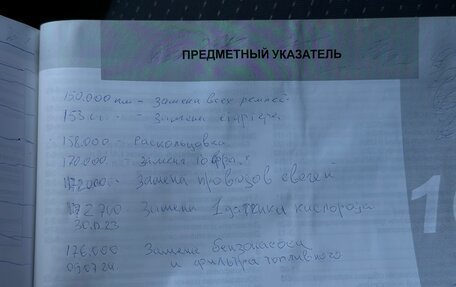 ПРЕДМЕТНЫЙ УКАЗАТЕЛЬ
150.000 км - замена всех ремней
153 - замена
158.000 - раскольцовка
170.000 - замена гофра
172000 - замена проводов свечей
172700 - замена 1 датчика кислорода
30.11.23
176.000 Замена бензонасоса
09.07.24. и фильтра топливного